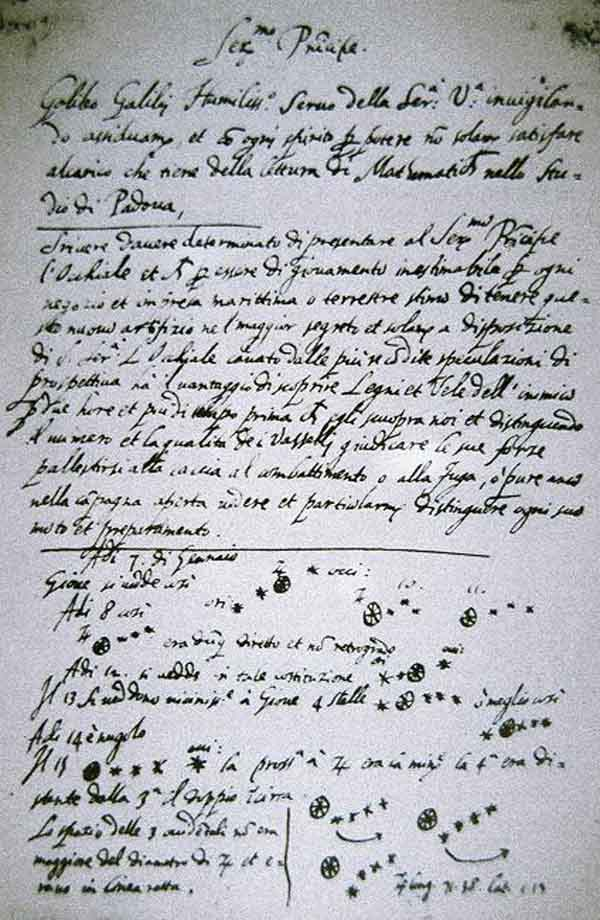 Ser.mo Principe.
Galileo Galilei Humiliss.o Servo della Ser.a V.a invigilan-
do assiduam.te et con ogni spirito per potere non solam.te satisfare
al carico che tiene della lettura di Mathematiche nello Stu-
dio di Padova,
Scrivere d'avere determinato di presentare al Ser.mo Principe
l'Occhiale et per essere di giovamento inestimabile per ogni
negozio et impresa marittima o terrestre stimo di tenere que-
sto nuovo artifizio nel maggior segreto et solam a disposizione
di S. Ser.a L'Occhiale cavato dalle più recondite speculazioni di
prospettiva ha il vantaggio di scoprire Legni et Vele dell'inimico
per due hore et più di tempo prima che egli scuopra noi et distinguendo
il numero et la qualità dei Vasselli giudicare le sue forze
pallestirsi alla caccia al combattimento o alla fuga, o pure anco
nella capagna aperta vedere et particolarm distinguere ogni suo
moto et preparamento.
Adi 7. di Gennaio
Gione si vedde così occi:
Adi 8 così ori: 10. 11.
era dunque diretto et non retrogrado
Adi 12. si vedde in tale costituzione ori occi:
Il 13 si veddono vicinissi.e à Gione 4 stelle è meglio così
Adi 14 è nugolo
Il 15 occi: la pross.a à ♃ era la min.e la 4.a era di-
stante dalla 3.a il doppio Circa
Lo spazio delle 3 occidentali non era
maggiore del diametro di ♃ et e-
rano in linea retta.
♃ long. 71.38. Lat. 1.13